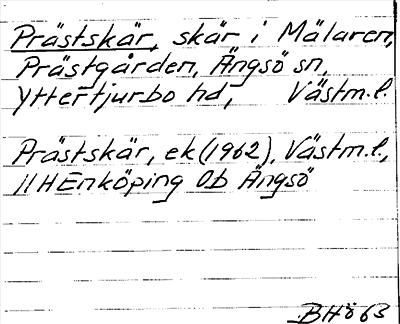 Prästskär, skär i Mälaren,
Prästgården, Ängsö sn,
Yttertjurbo hd, Västm.l.
Prästskär, ek (1962), Västm.l.,
11H Enköping 0b Ängsö
BHö 63